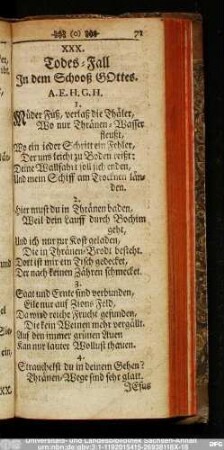 (o) 71
XXX.
Todes-Fall
In dem Schooß GOttes.
A. E. H. G. H.
1.
Müder Fuß, verlaß die Thäler,
Wo nur Thränen-Wasser
fleußt,
Wo ein ieder Schritt ein Fehler,
Der uns leicht zu Boden reißt:
Deine Wallfahrt soll sich enden,
Und mein Schiff am Trocknen län-
den.
2.
Hier must du in Thränen baden,
Weil dein Lauff durch Bochim
geht,
Und ich nur zur Kost geladen,
Die in Thränen-Brodt besteht.
Dort ist mir ein Tisch gedecket,
Der nach keinen Zähren schmecket.
3.
Saat und Ernte sind verbunden,
Eile nur auf Zions Feld,
Da wird reiche Frucht gefunden,
Die kein Weinen mehr vergällt.
Auf den immer grünen Auen
Kan nur lauter Wollust thauen.
4.
Strauchelst du in deinem Gehen?
Thränen-Wege sind sehr glatt.
JEsus
XX.
Universitäts- und Landesbibliothek Sachsen-Anhalt